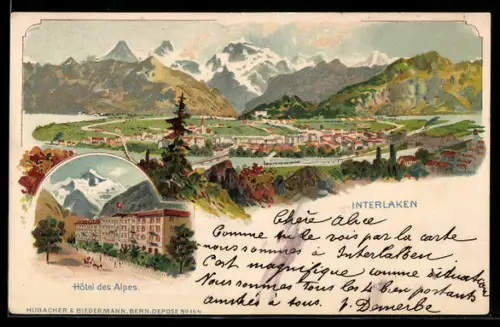 INTERLAKEN
Chère Alice
Comme tu le vois par la carte
nous sommes à Interlaken
C'est magnifique comme situation
Nous sommes tous les 4 bien portants
amitiés à tous.
Hôtel des Alpes.
HUBACHER & BIEDERMANN, BERN. DEPOSE No